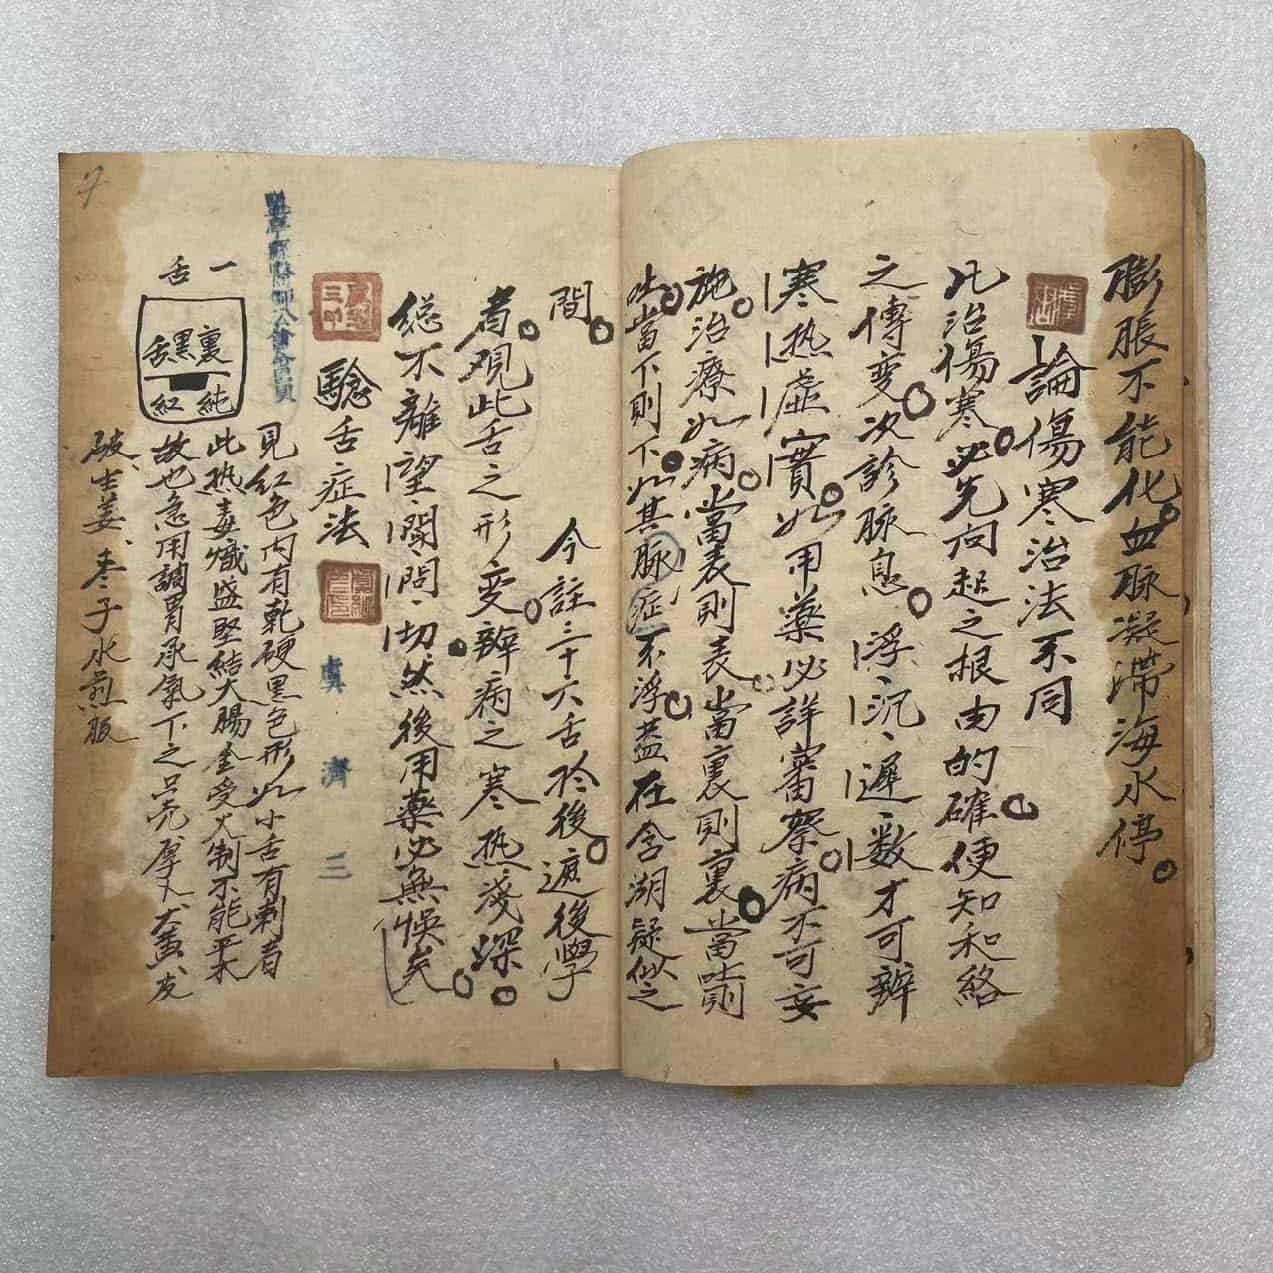 膨脹不能化血脉凝滞海水停
論傷寒治法不同
凡治傷寒必先问起之根由的確便知和絡
之傳变次診脉息浮沉遲数才可辨
寒热虛實如用藥必詳審察病不可妄
施治療如病當表則表當裏則裏當吐則
吐當下則下如其脉症不浮蓋在含湖疑似之
間
今註三十六舌於後遮後學
者观此舌之形变辨病之寒热淺深
総不離望闻問切然後用藥必無悞矣
驗舌症法
虞濟三
一舌
裏黑舌
純紅
見红色内有乾硬黑色形如小舌有刺者
此热毒熾盛堅結大腸金受火制不能平木
故也急用調胃承氣下之
生姜枣子水煎服